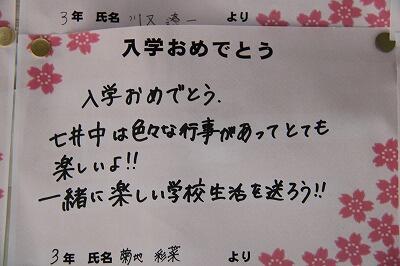 3年 氏名 川又 湊一 より
入学おめでとう
入学おめでとう.
七井中は色々な行事があってとても
楽しいよ!!
一緒に楽しい学校生活を送ろう!!
3年 氏名 菊地 彩菜 より